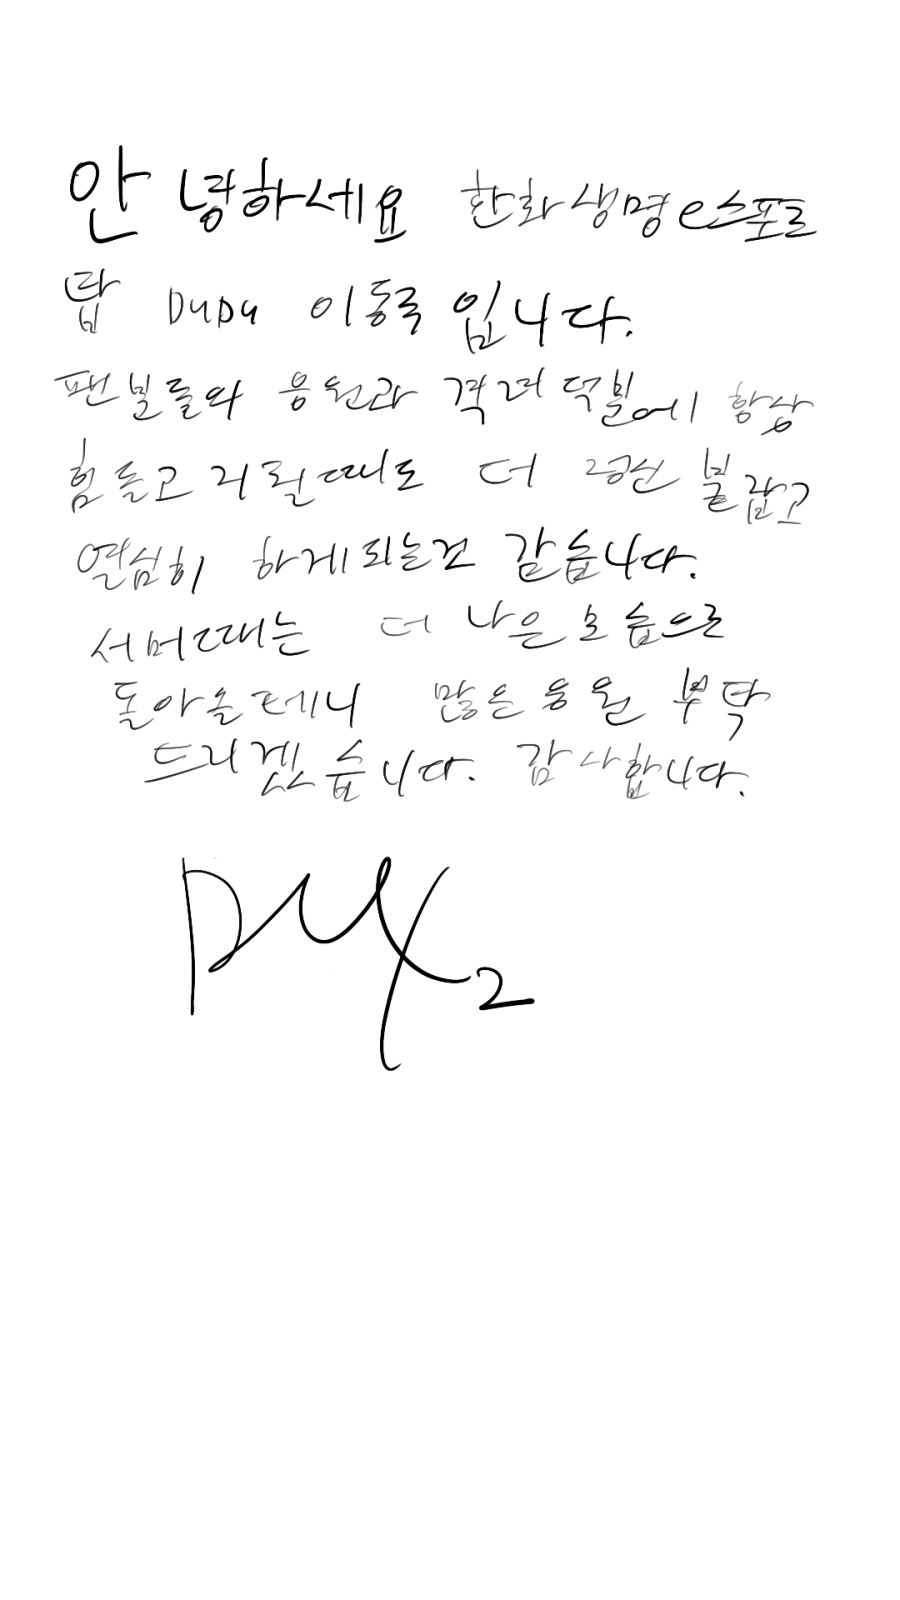 안녕하세요 한화생명e스포츠
탑 DuDu 이동주 입니다.
팬분들의 응원과 격려 덕분에 항상
힘들고 지칠때도 더 불잡고
열심히 하게되는것 같습니다.
서머때는 더 나은 모습으로
돌아올테니 많은 응원 부탁
드리겠습니다. 감사합니다.